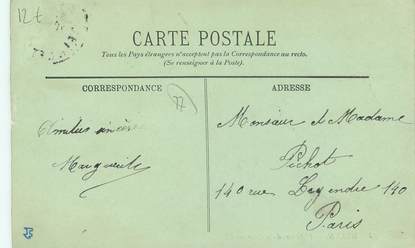 12t
CARTE POSTALE
Tous les Pays étrangers n'acceptent pas la Correspondance au recto.
(Se renseigner à la Poste).
CORRESPONDANCE
77
ADRESSE
Amitiés sincères
Marguerite
Monsieur et Madame
Pichot
140 rue Legendre 140
Paris